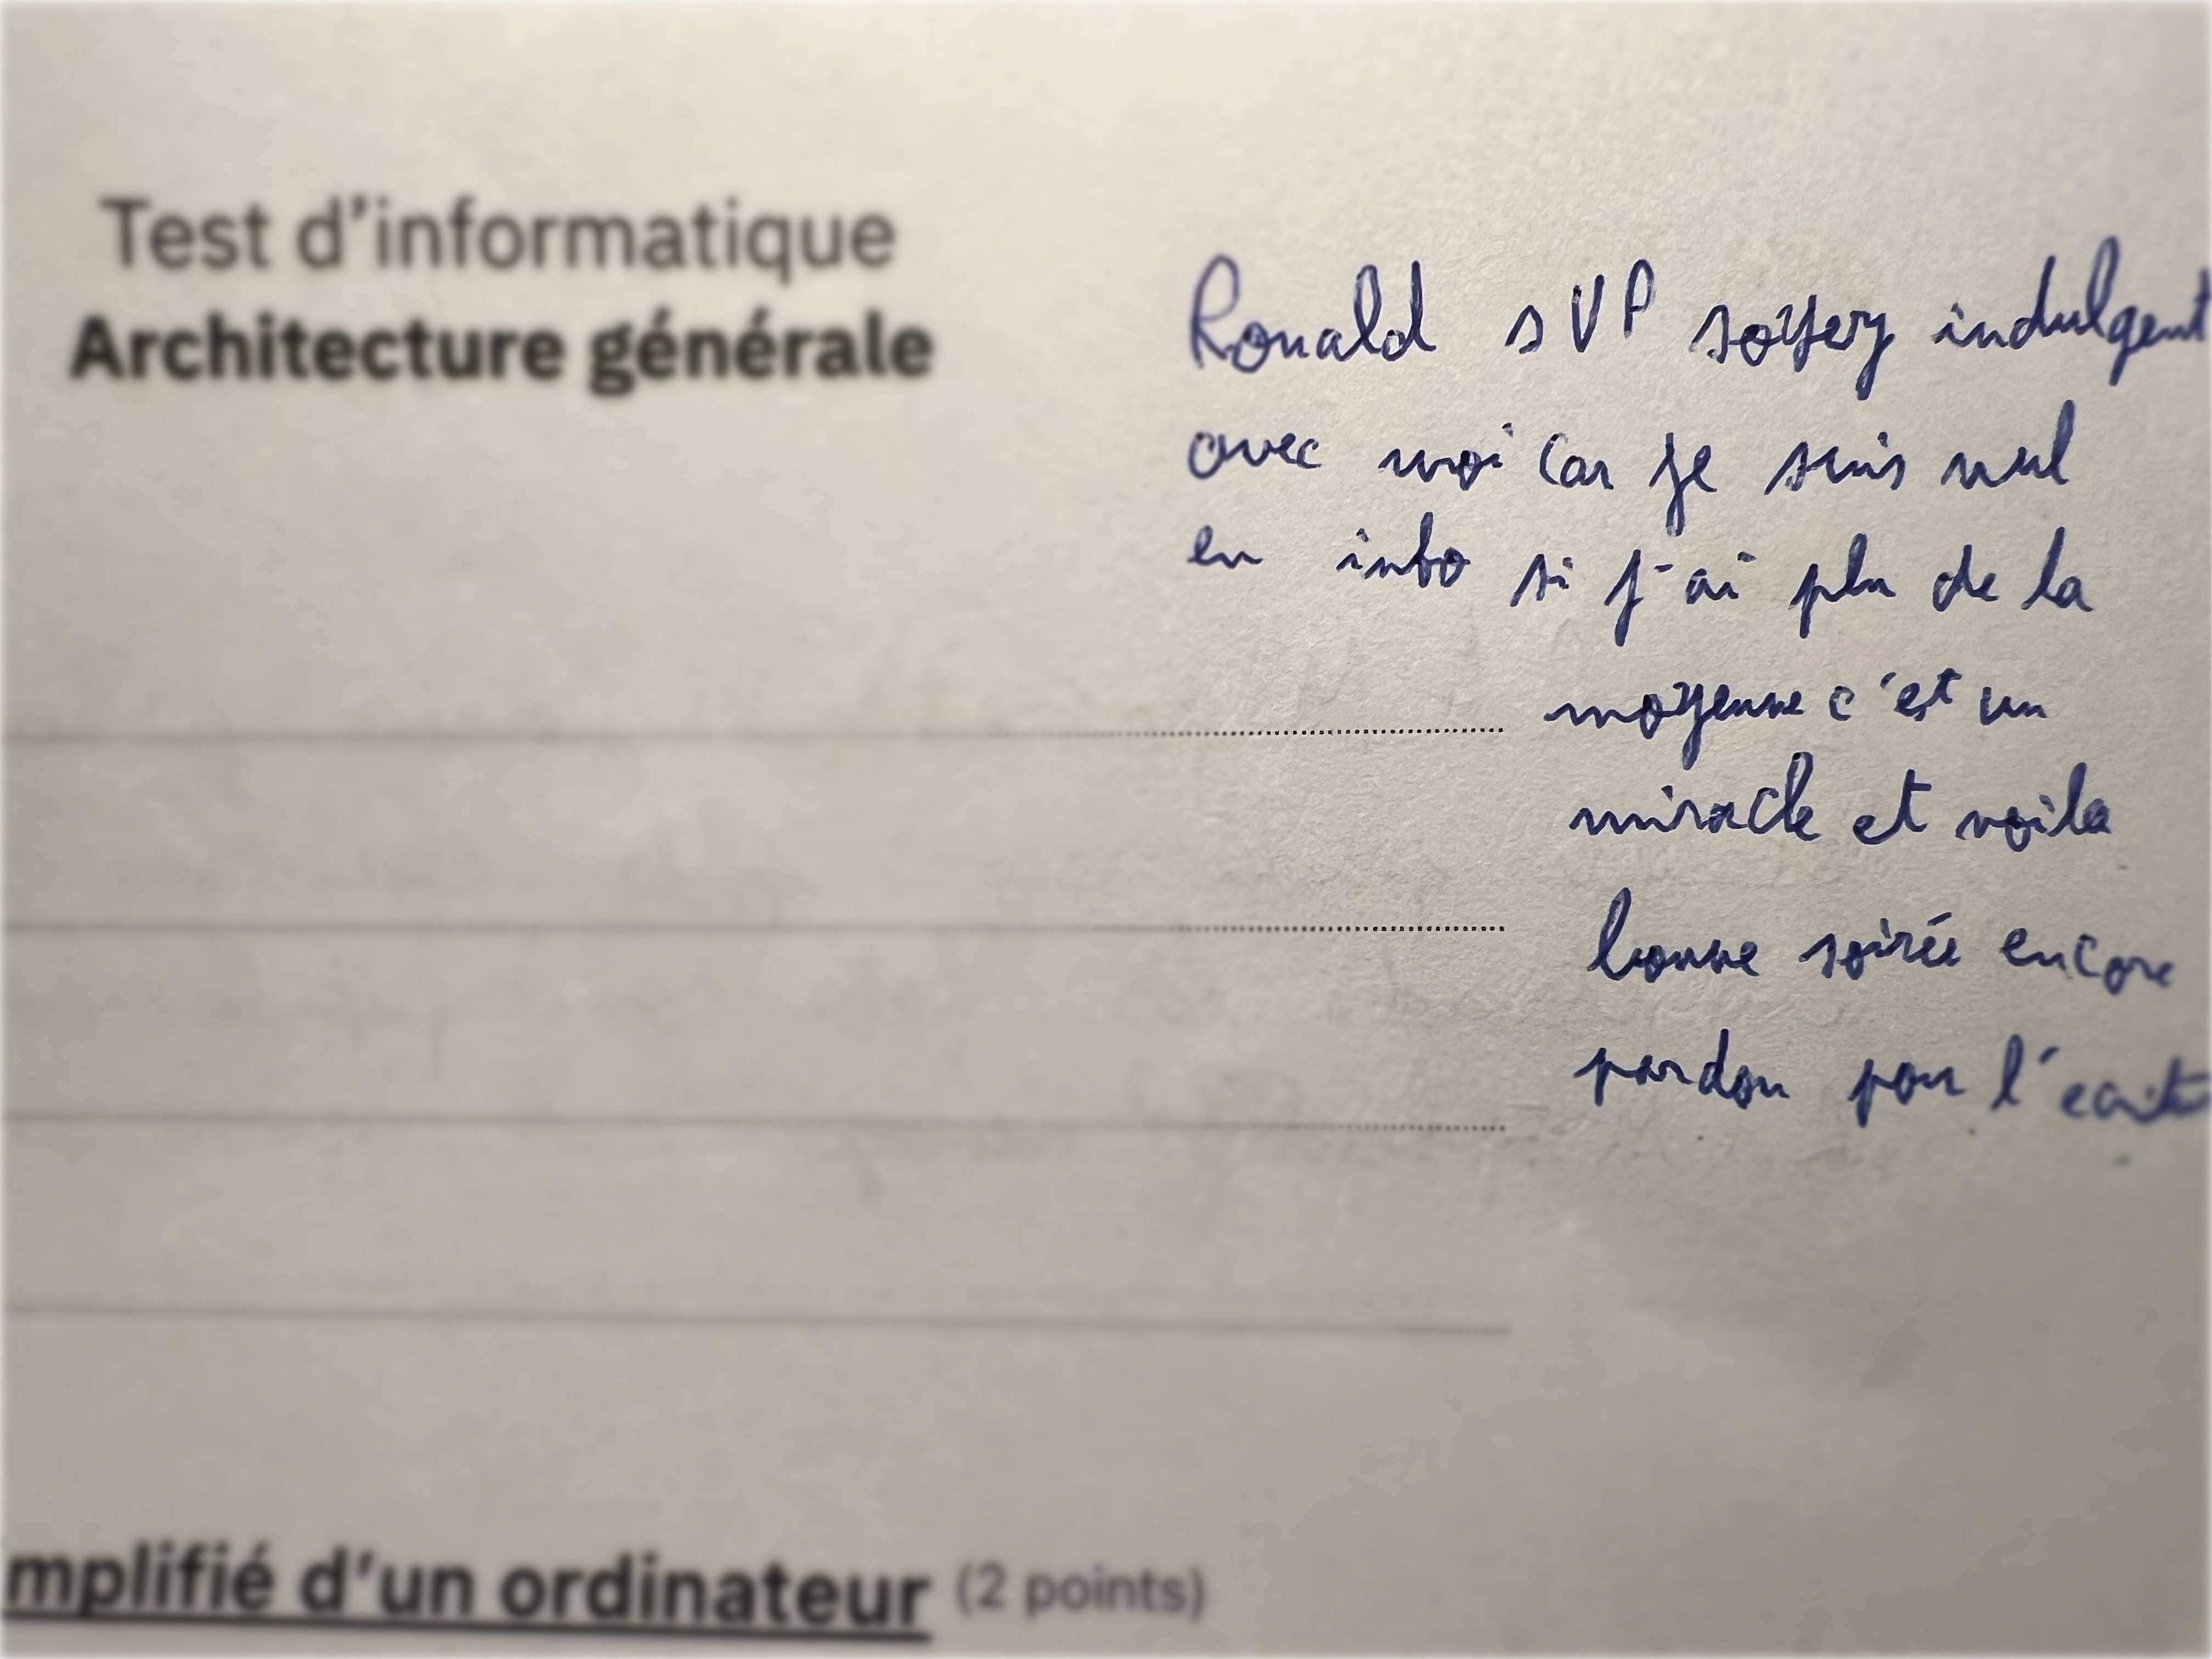 Test d'informatique
Architecture générale
Ronald sVP soyez indulgent
avec moi car je suis nul
en info si j'ai plu de la
moyenne c'est un
miracle et voila
bonne soirée encore
pardon pour l'
mplifié d'un ordinateur (2 points)